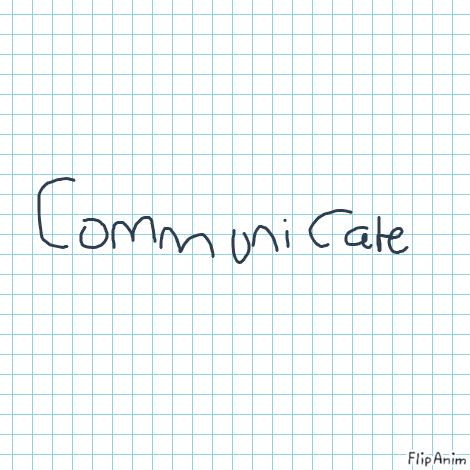 Communicate
FlipAnim